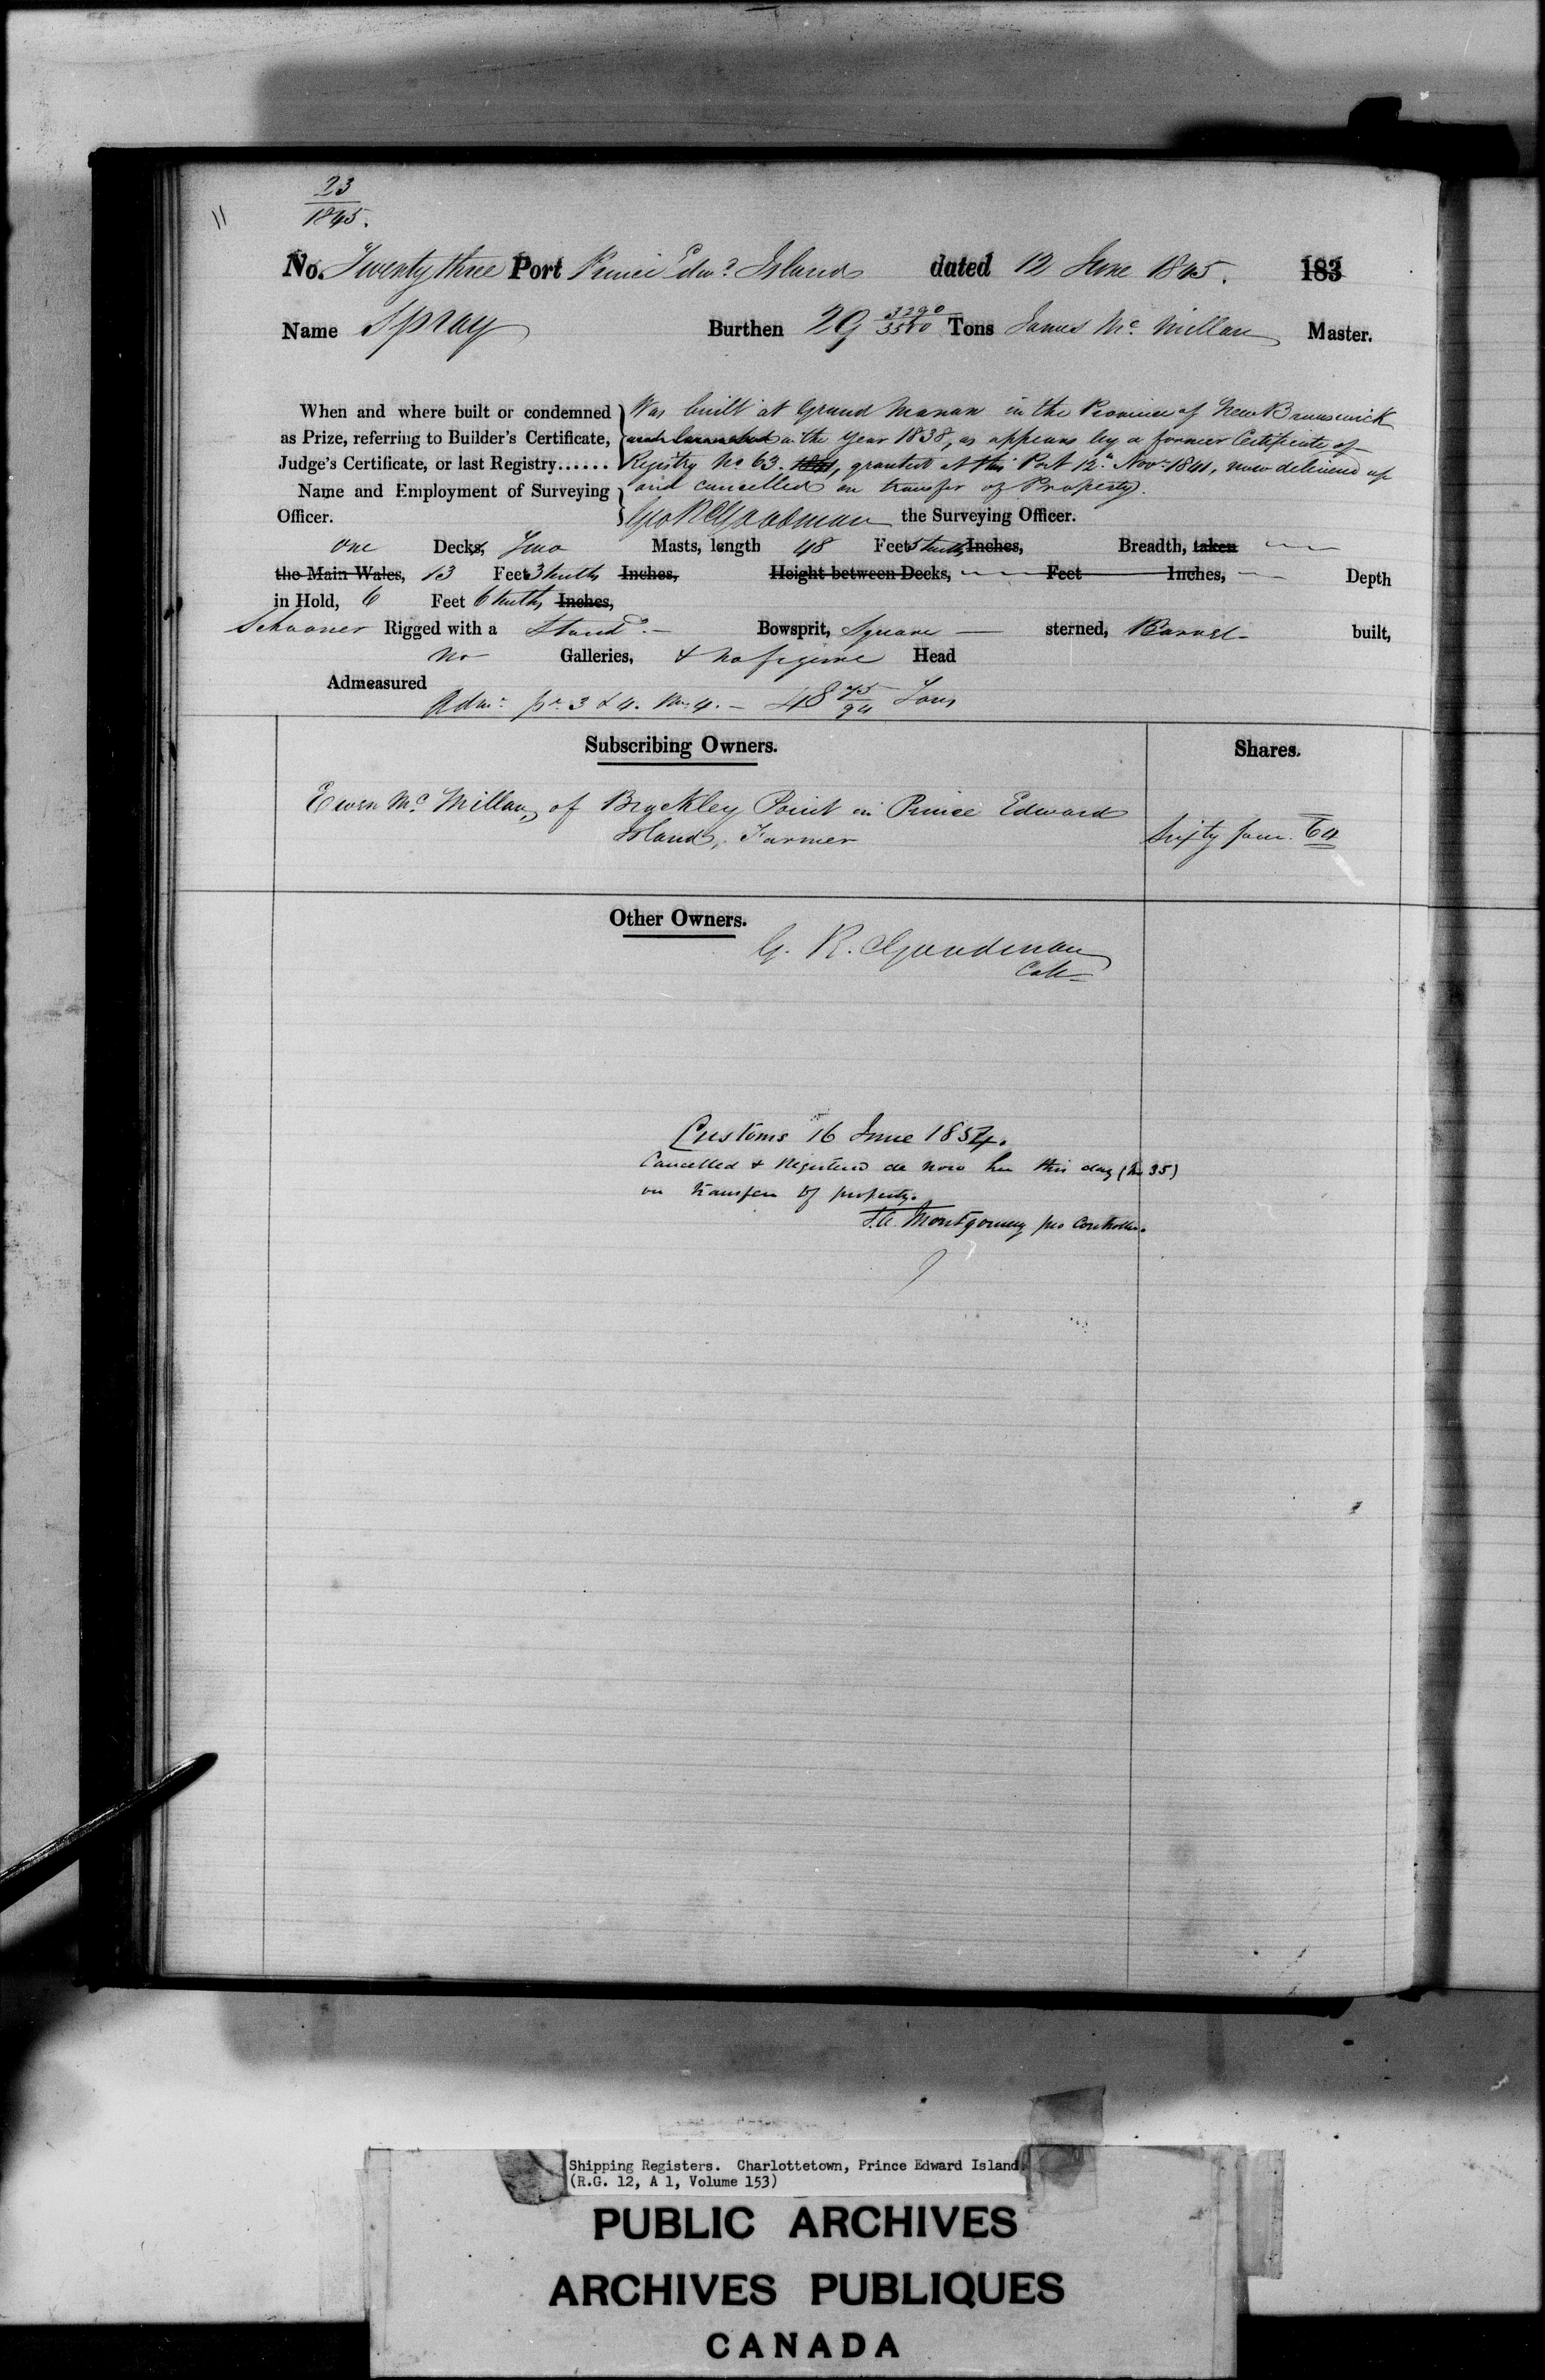 11
23
1845.
No. Twenty three Port Prince Edwd Island dated 12 June 1845. 183
Name Spray Burthen 29 3290/3500 Tons James Mc Millan Master.
When and where built or condemned Was built at Grand Manan in the Province of New Brunswick
as Prize, referring to Builder's Certificate, in the Year 1838, as appears by a former Certificate of
Judge's Certificate, or last Registry...... Registry No 63. 1841, granted at this Port 12th Novr 1841, now delivered up
Name and Employment of Surveying and cancelled on transfer of Property.
Officer. Geo R Goodman the Surveying Officer.
one Decks, Two Masts, length 48 Feet 5 tenths Inches, Breadth, taken
the Main Wales, 13 Feet 3 tenths Inches, Height between Decks, Feet Inches, Depth
in Hold, 6 Feet 6 tenths Inches,
Schooner Rigged with a Stand. Bowsprit, Square sterned, Carvel built,
No Galleries, & no figure Head
Admeasured
pr 3 & 4. Wm 4. - 48 75/94 Tons
Subscribing Owners. Shares.
Ewen Mc Millan, of Brackley Point in Prince Edward
Island, Farmer Sixty four. 64
Other Owners.
G. R. Goodman
Coll
Customs 16 June 1854.
Cancelled & Registered de novo here this day (No 35)
on transfer of property.
Montgomery pro Controller.
Shipping Registers. Charlottetown, Prince Edward Island.
(R.G. 12, A 1, Volume 153)
PUBLIC ARCHIVES
ARCHIVES PUBLIQUES
CANADA